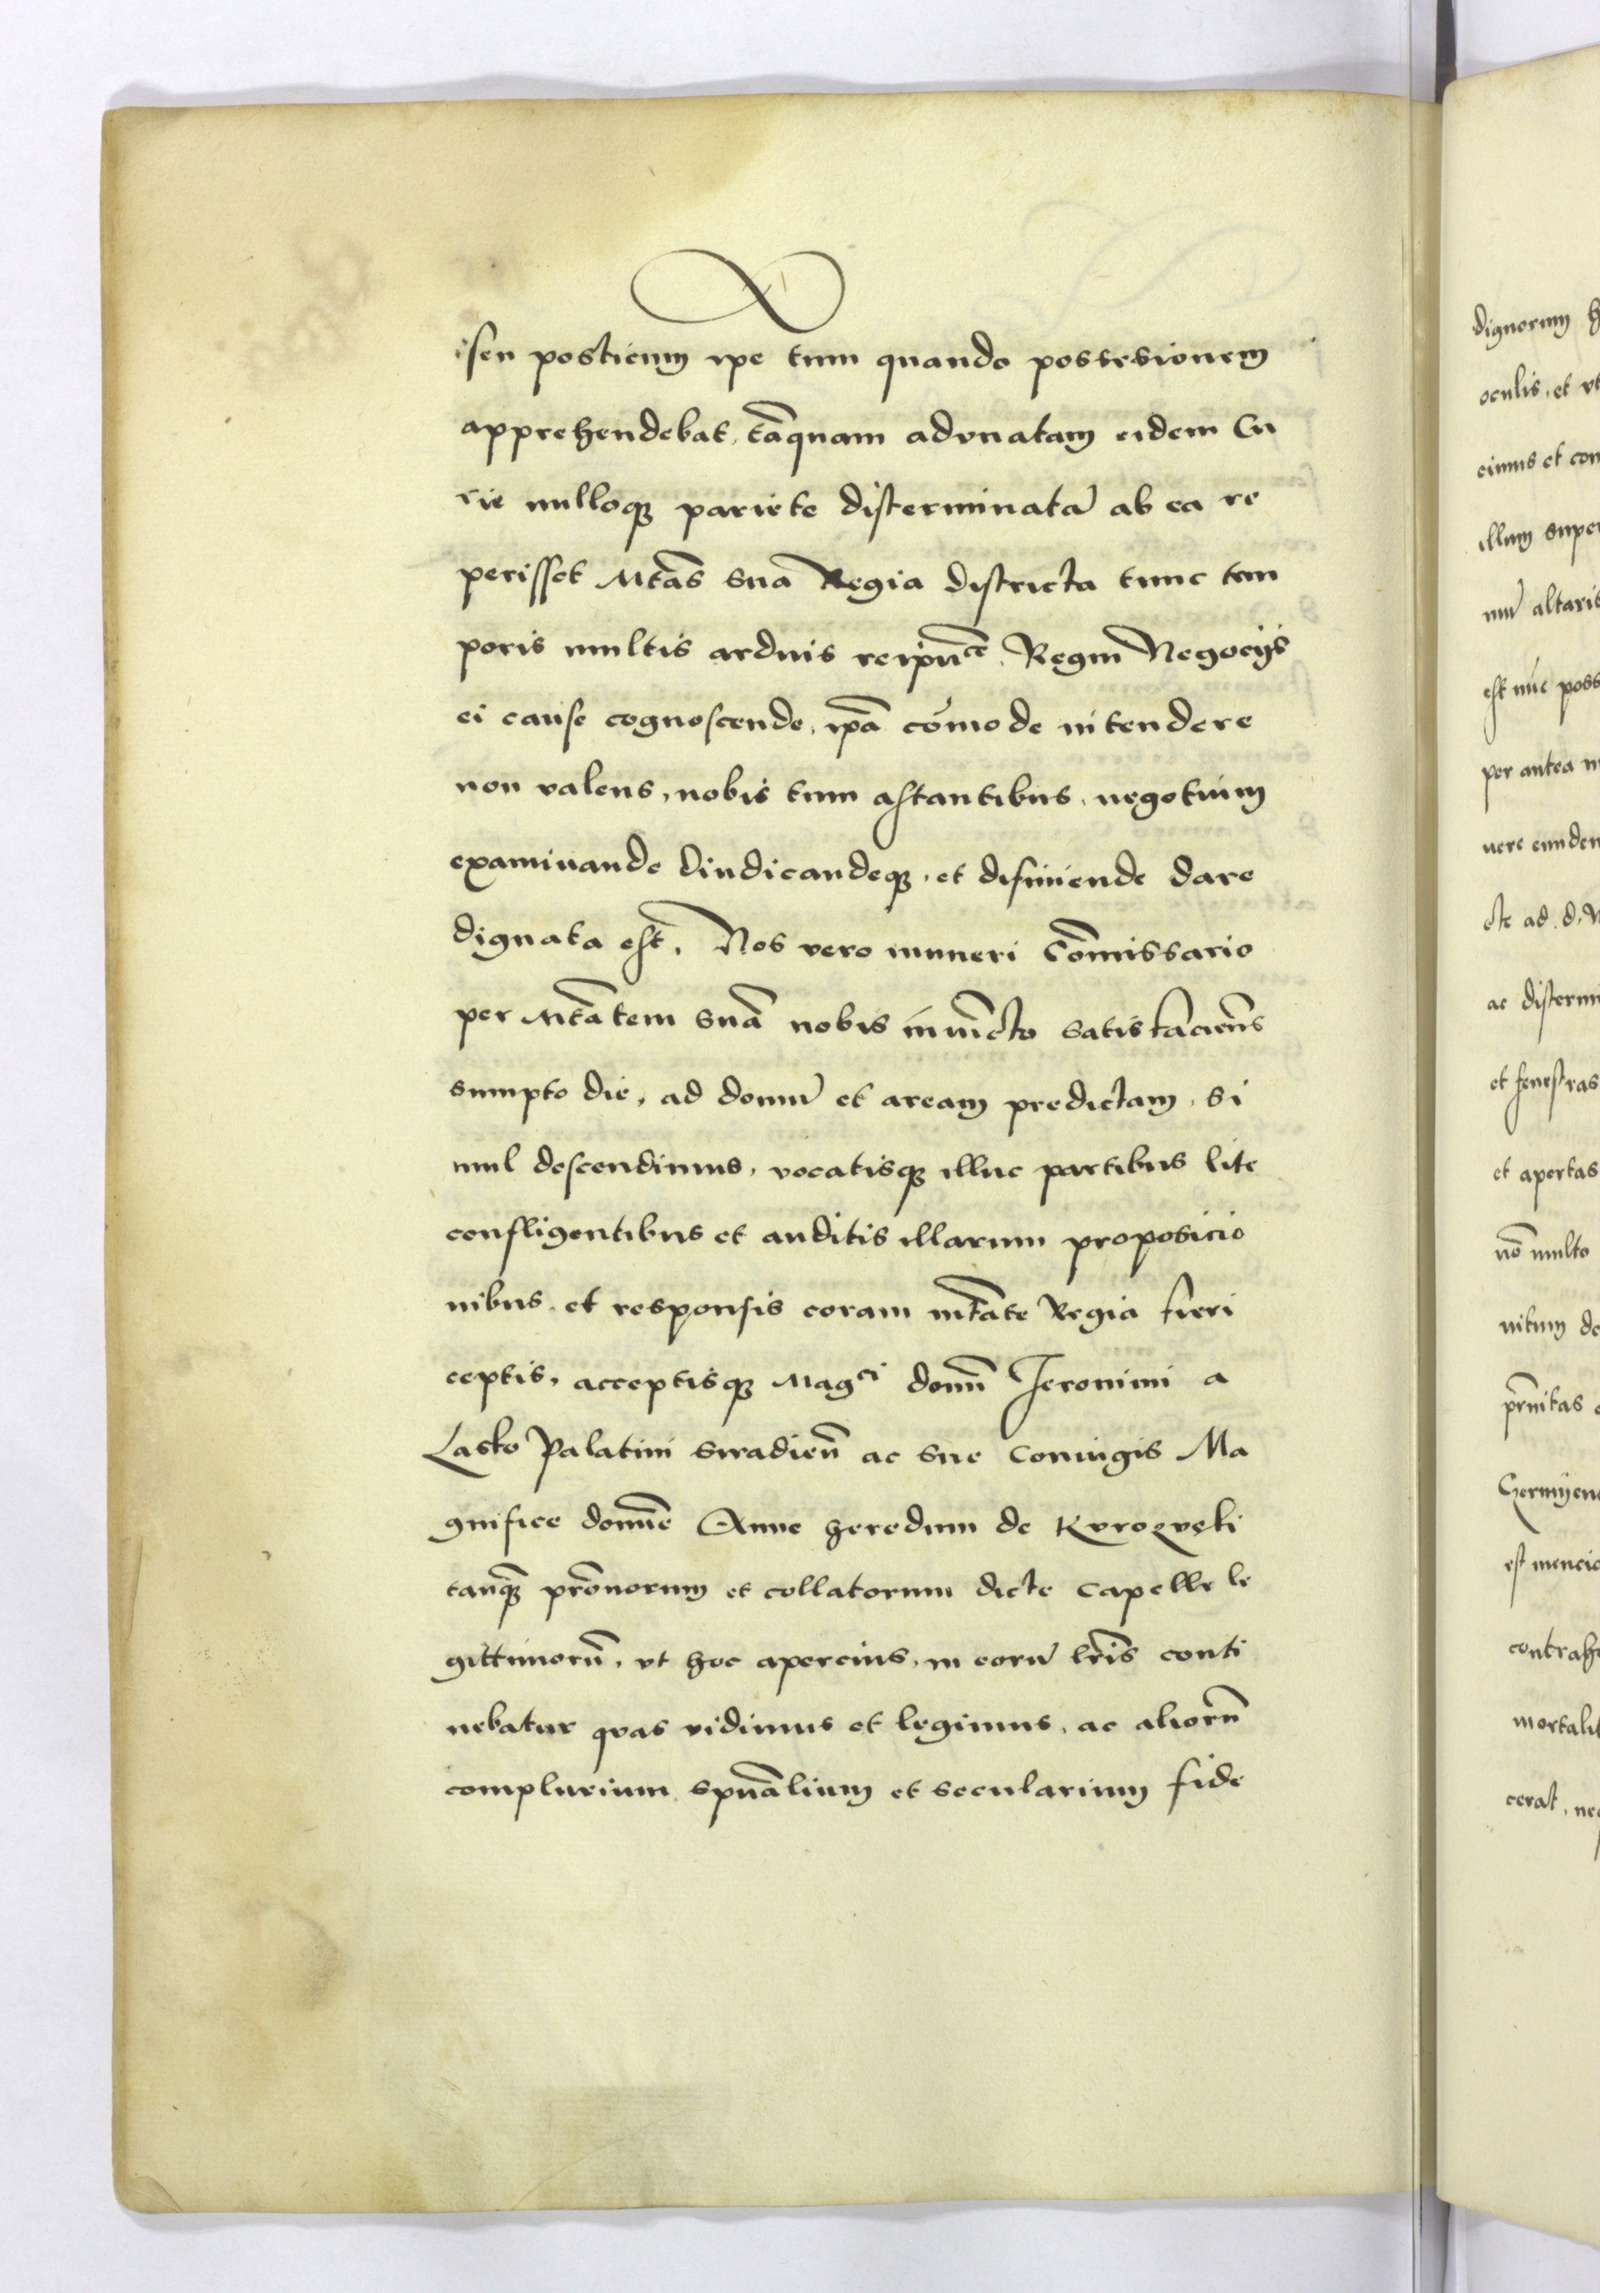 seu posticum ipe tum quando possesionem
apprehendebat, tāquam advnatam eidem Cu
rie nulloqȝ pariete disterminatā ab ea re
perisset Mtās sua Regia districta tunc tem
poris multis arduis reipuce. Regni Negocijs
ei cause cognoscende, ipā cōmode intendere
non valens, nobis tum astantibus, negotium
examinande Diudicandeqȝ, et difiniende dare
dignata est. Nos vero muneri Cōmissario
per Mtātem suā nobis iniūcto satisfaciens
sumpto die, ad domū et aream predictam, si
mul descendimus, vocatisqȝ illuc partibus lite
confligentibus et auditis illarum proposicio
nibus, et responsis coram mtāte Regia fieri
ceptis, acceptisqȝ Magci domī Jeronimi a
Lasko Palatini Siradieñ ac sue Coniugis Ma
gnifice domīe Anne heredum de Kvrozvęki
tanqȝ prōnorum et collatorum dicte Capelle le
gittimorū, vt hoc apercius, in eorū lrīs conti
nebatur qvas vidimus et legimus, ac aliorū
complurium spūalium et secularium fide
dignorum
oculis, et vt
cimus et con
illum super
altaris
est nūc poss
per antea
uere eundem
cte ad. d.
ac distermi
et fenestras
et apertas
nō multo
nitum de
est mencio
contrahe
mortalit
cerat, nec